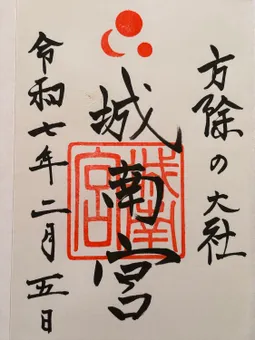 方除の大社
城南宮
令和七年二月五日
城南宮